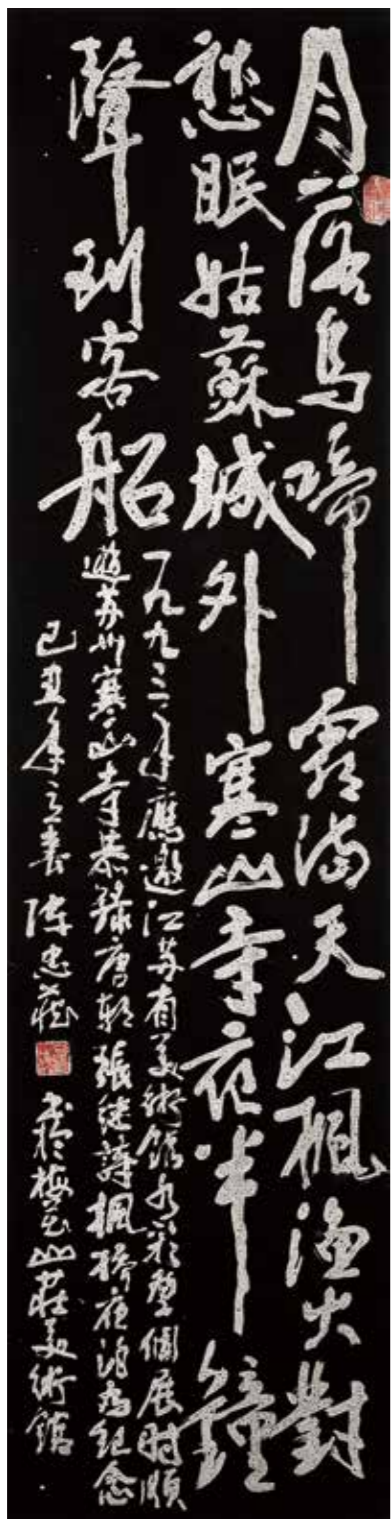 月落烏啼霜滿天江楓漁火對
愁眠姑蘇城外寒山寺夜半鐘
聲到客船
一九九三年應邀江苏省美術館水彩畫個展时順
遊苏州寒山寺恭錄唐朝張継詩楓橋夜泊為紀念
己丑年立春 陈忠藏 書於梅花山莊美術館